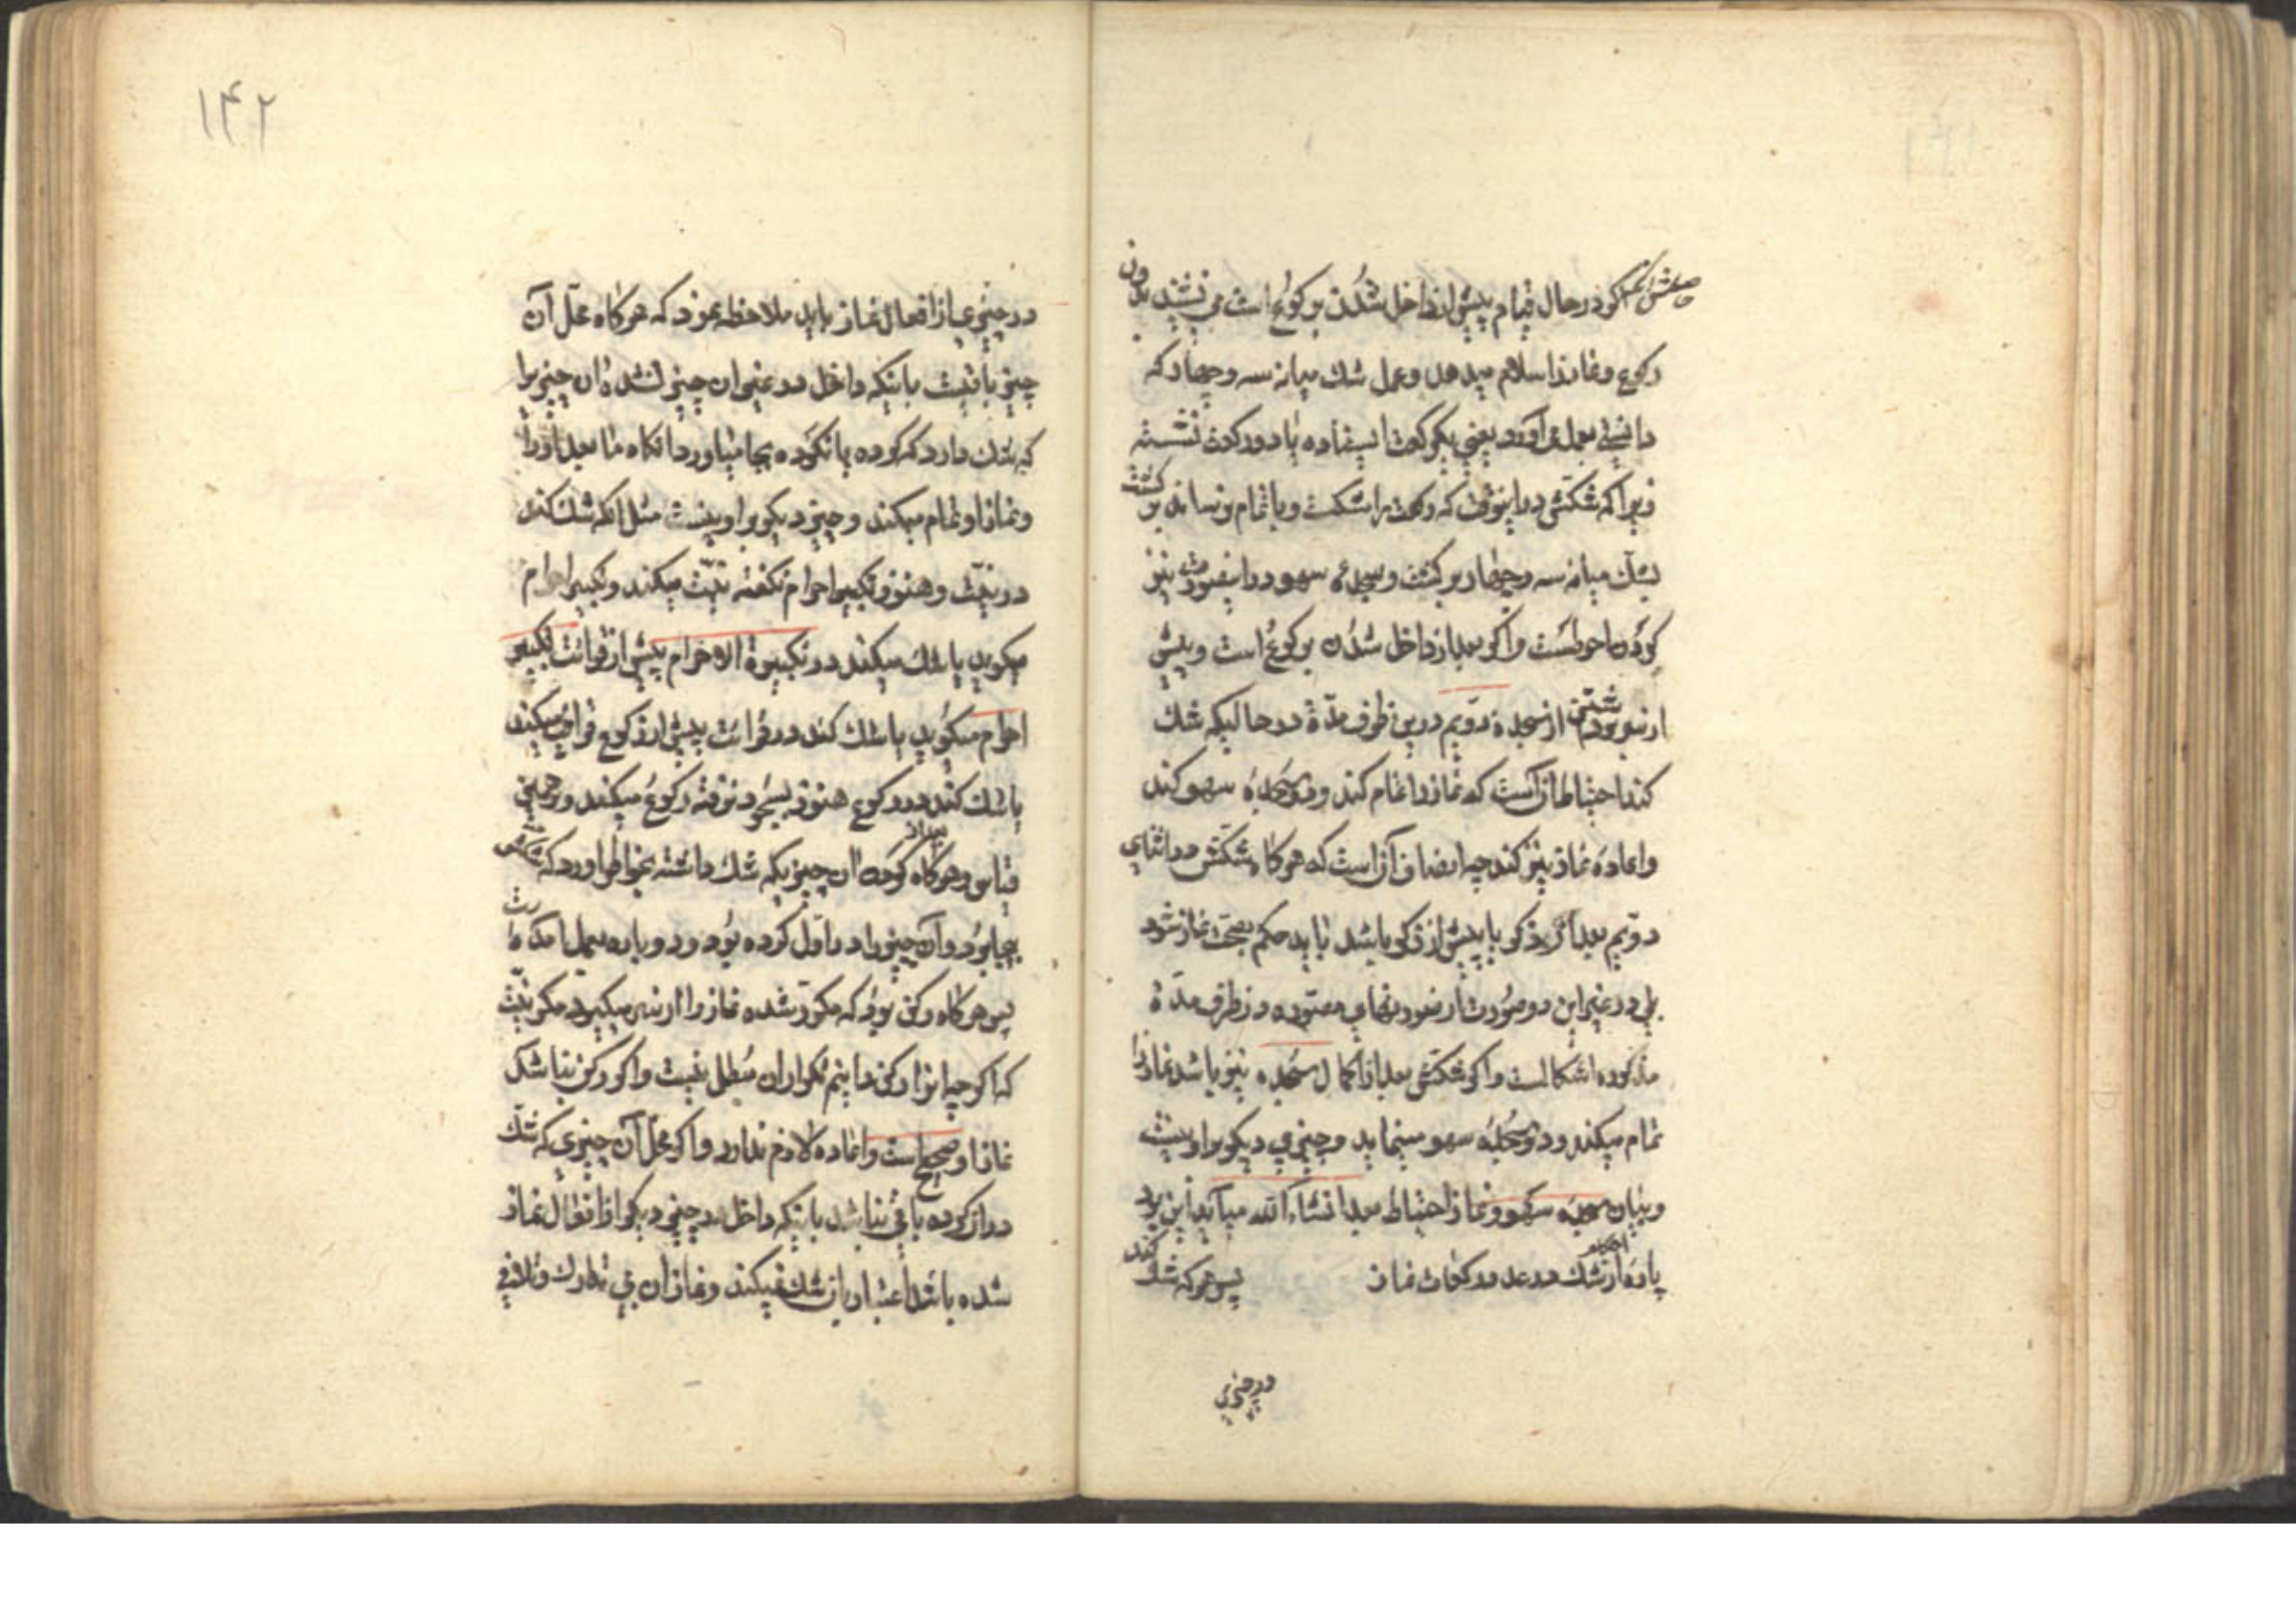 حاصلش اگر در حال قیام پیش از داخل شدن برکوع است می‌نشیند بدون
رکوع و نماز را سلام میدهد و عمل شك میانه سه و چهار که
دانستی بعمل می‌آورد یعنی یکرکعت ایستاده یا دو رکعت نشسته
زیرا که شکش در اینوقت که رکعت را شکست و باتمام نرسانده بر کشت
بشك میانه سه و چهار بر کشت و سجدهٔ سهو در اینصورت نیز
کردن احوطست و اکر بعد از داخل شدن برکوع است و پیش
از سر برداشتن از سجده دویم درین ظرف مدّة در حالیکه شك
کند احتیاط آنست که نماز را تمام کند و دو سجدهٔ سهو کند
و اعادهٔ نماز نیز کند چه انصاف آنست که هرکاه شکش در اثنای
دویم بعد از ذکر یا پیش از ذکر باشد باید حکم بصحّت نماز شود
بلی در غیر این دو صورت از صورتهای مصوّره در ظرف مدّة
مذکوره اشکالست و اکر شکش بعد از اکمال سجده نیز باشد نماز را
تمام میکند و دو سجدهٔ سهو مینماید و چیزی دیکر برا و نیست
و بیان سجدهٔ سهو و نماز احتیاط بعد انشاء الله میآید این بود
پارهٔ از احکام شك در عدد رکعات نماز پس هرکه شك کند
در چیزی
۱۴۲
در چیزی از افعال نماز باید ملاحظه نمود که هرکاه محلّ آن
چیز باقیست باینکه داخل در غیر ان چیز نشده ان چیز را
که شك دارد که کرده یا نکرده بجا میاورد انکاه ما بعد او را
و نماز او تمام میکند و چیز دیکر برا و نیست مثل انکه شك کند
در نیّت و هنوز تکبیر احرام نکفته نیّت میکند و تکبیر احرام
میکوید یا شك میکند در تکبیرة الاحرام پیش از قرائت تکبیر
احرام میکوید یا شك کند در قرائت پیش از رکوع قرائت میکند
یا شك کند در رکوع هنوز بسجود نرفته رکوع میکند و بر همین
قیاس و هرکاه بعد از کردن ان چیزیکه شك داشته بخاطر اورد که شکش
بیجا بود و آن چیز را در اول کرده بود و دوباره بعمل آمده
پس هرکاه رکن بود که مکرّر شده نماز را از سر میکیرد مکر نیّت
که اکر چه انرا رکن دانیم تکرار ان مبطل نیست و اکر رکن نباشد
نماز او صحیح است و اعاده لازم ندارد و اکر محلّ آن چیزی که شك
در ان کرده باقی نباشد باینکه داخل در چیز دیکر از افعال نماز
شده باشد اعتبار بان شك نمیکند و نماز ان بی تدارك و تلافی